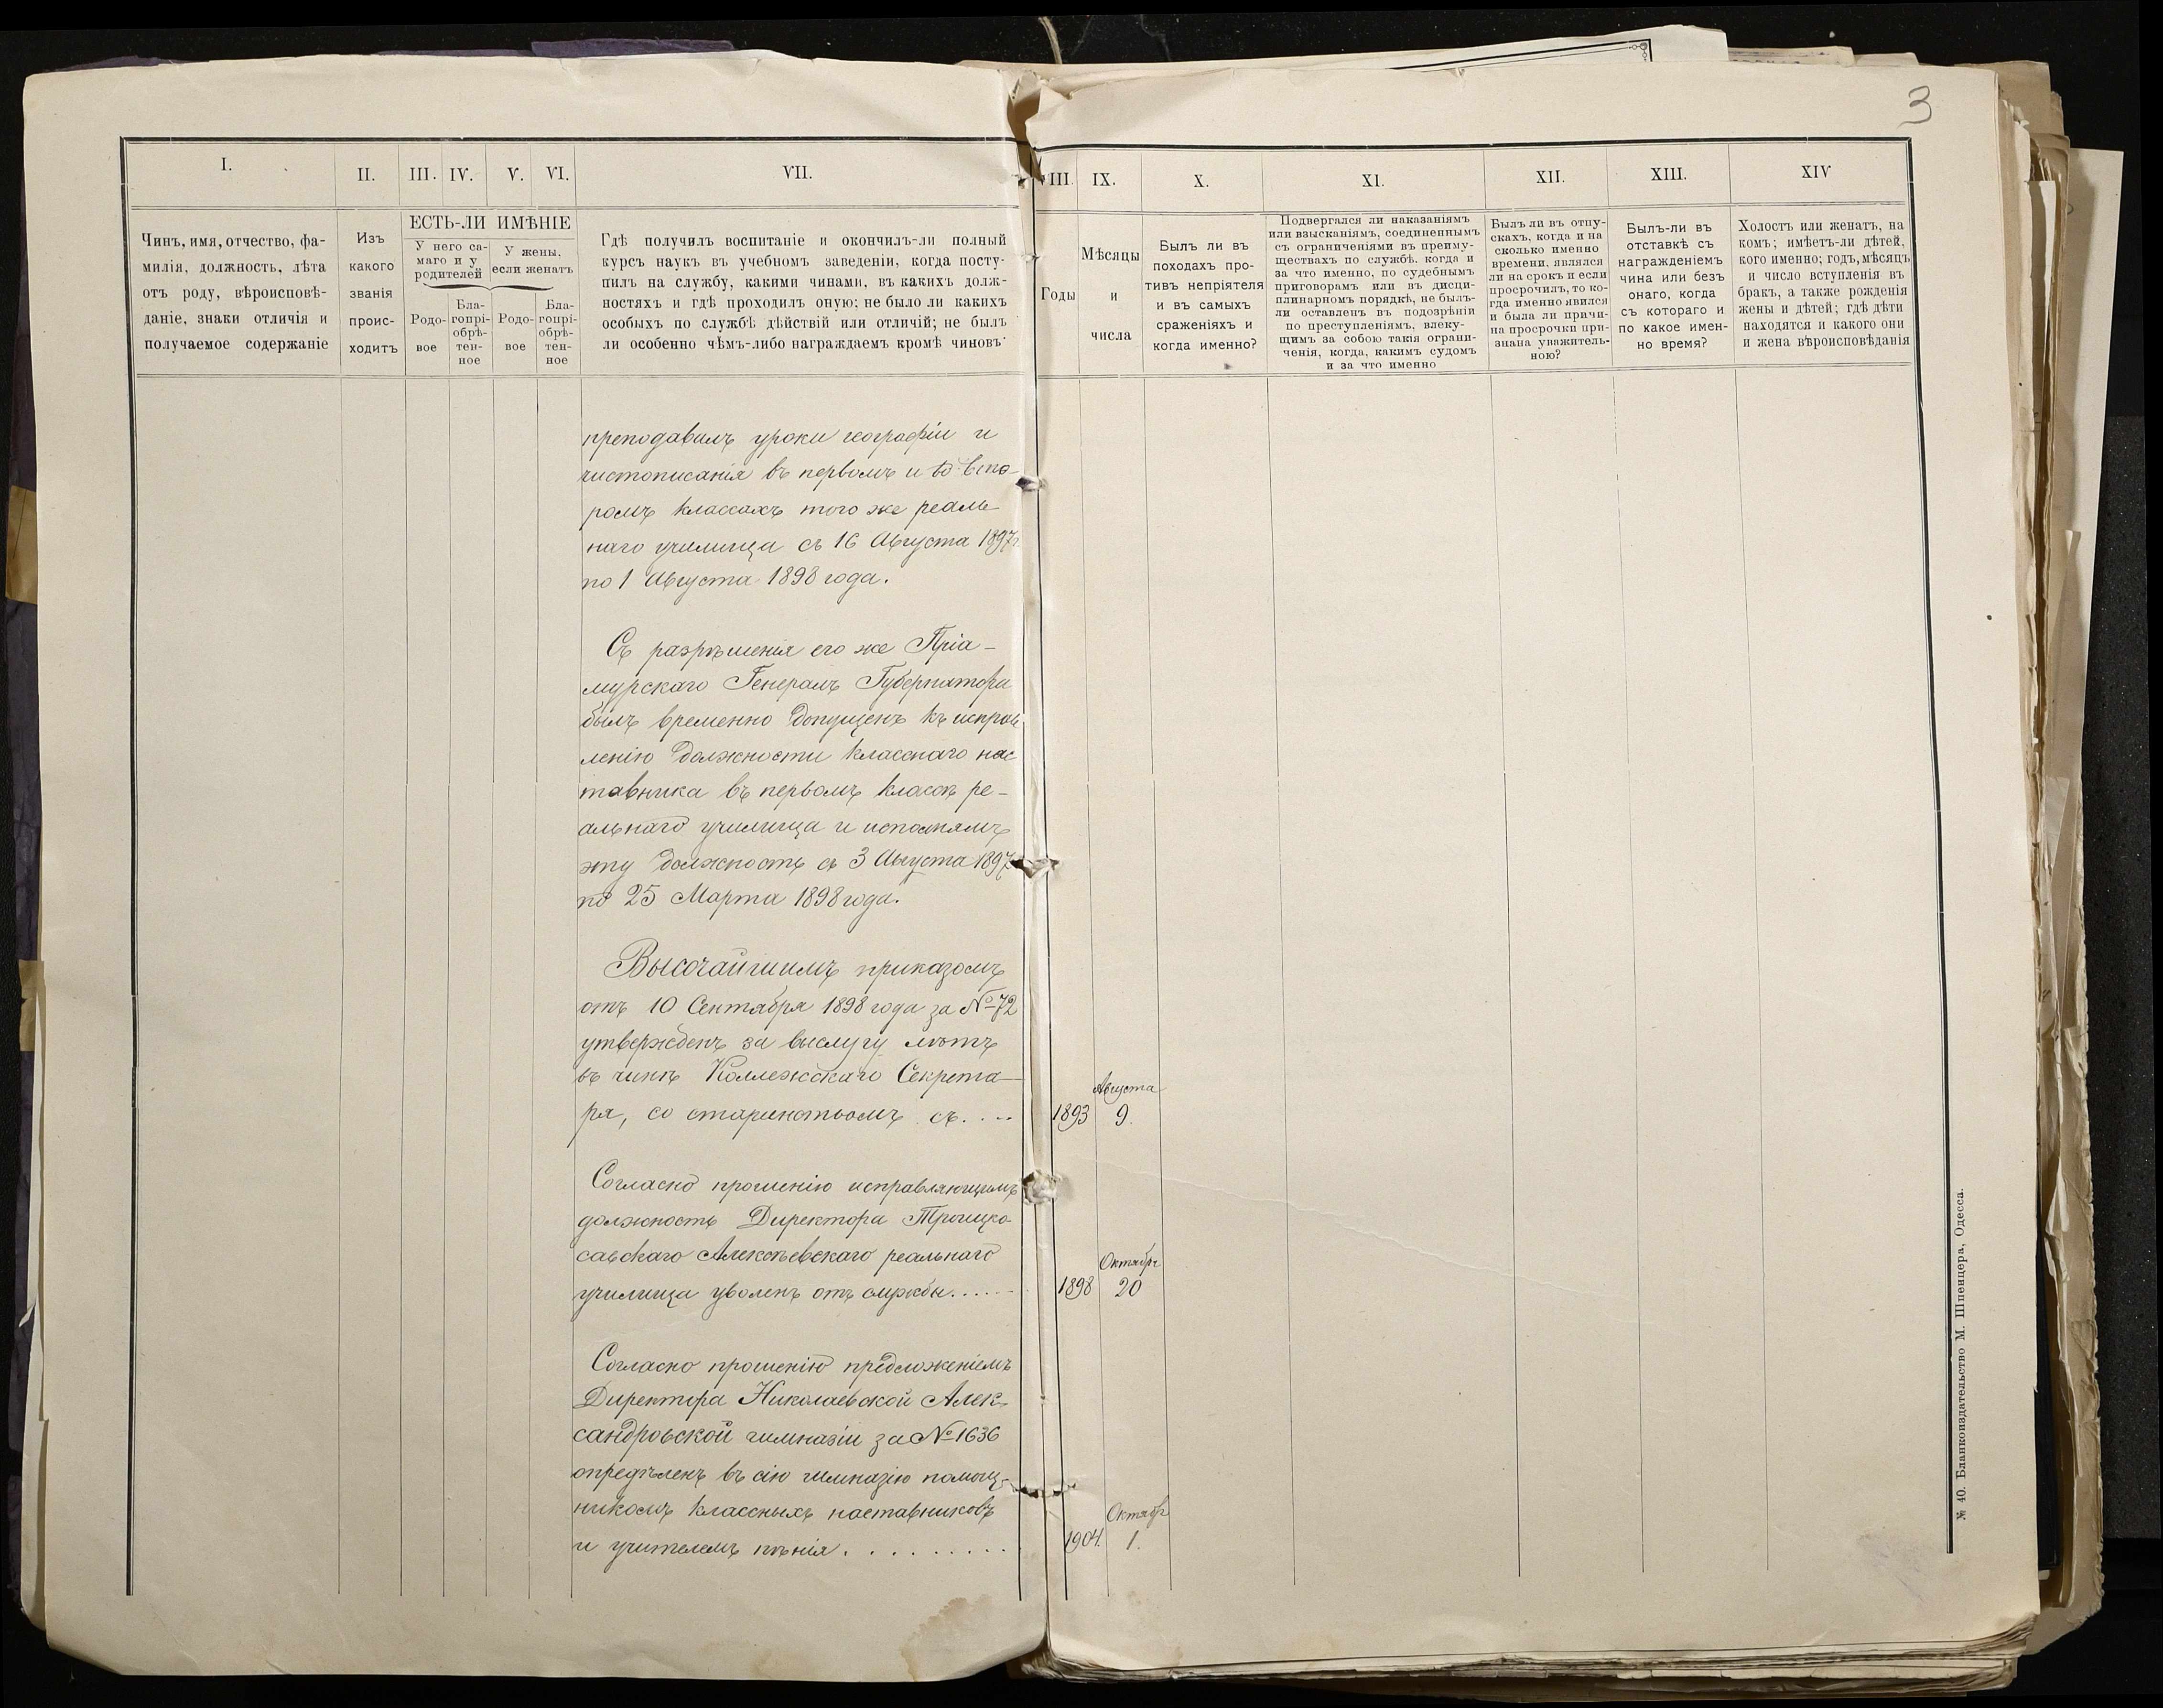 3
I.
II.
III.
IV.
V.
VI.
VII.
VIII.
IX.
X.
XI.
XII.
XIII.
XIV
Чинъ, имя, отчество, фа-
милія, должность, лѣта
отъ роду, вѣроисповѣ-
даніе, знаки отличія и
получаемое содержаніе
Изъ
какого
званія
проис-
ходитъ
ЕСТЬ-ЛИ ИМѢНІЕ
У него са-
маго и у
родителей
У жены,
если женатъ
Родо-
вое
Бла-
гопрі-
обрѣ-
тен-
ное
Родо-
вое
Бла-
гопрі-
обрѣ-
тен-
ное
Гдѣ получилъ воспитаніе и окончилъ-ли полный
курсъ наукъ въ учебномъ заведеніи, когда посту-
пилъ на службу, какими чинами, въ какихъ долж-
ностяхъ и гдѣ проходилъ оную; не было ли какихъ
особыхъ по службѣ дѣйствій или отличій; не былъ
ли особенно чѣмъ-либо награждаемъ кромѣ чиновъ
Годы
Мѣсяцы
и
числа
Былъ ли въ
походахъ про-
тивъ непріятеля
и въ самыхъ
сраженіяхъ и
когда именно?
Подвергался ли наказаніямъ
или взысканіямъ, соединеннымъ
съ ограниченіями въ преиму-
ществахъ по службѣ, когда и
за что именно, по судебнымъ
приговорамъ или въ дисци-
плинарномъ порядкѣ, не былъ-
ли оставленъ въ подозрѣніи
по преступленіямъ, влеку-
щимъ за собою такія ограни-
ченія, когда, какимъ судомъ
и за что именно
Былъ ли въ отпу-
скахъ, когда и на
сколько именно
времени, являлся
ли на срокъ и если
просрочилъ, то ко-
гда именно явился
и была ли причи-
на просрочки при-
знана уважитель-
ною?
Былъ-ли въ
отставкѣ съ
награжденіемъ
чина или безъ
онаго, когда
съ котораго и
по какое имен-
но время?
Холостъ или женатъ, на
комъ; имѣетъ-ли дѣтей,
кого именно; годъ, мѣсяцъ
и число вступленія въ
бракъ, а также рожденія
жены и дѣтей; гдѣ дѣти
находятся и какого они
и жена вѣроисповѣданія
преподавалъ уроки географіи и
чистописанія въ первомъ и во вто-
ромъ классахъ того же реаль
наго училища съ 16 Августа 1897 г.
по 1 Августа 1898 года.
Съ разрѣшенія его же Пріа-
мурскаго Генералъ Губернатора
былъ временно допущенъ къ исправ
ленію должности класснаго нас
тавника въ первомъ классѣ ре-
альнаго училища и исполнялъ
эту должность съ 3 Августа 1897
по 25 Марта 1898 года.
Высочайшимъ приказомъ
отъ 10 Сентября 1898 года за № 72
утвержденъ за выслугу лѣтъ
въ чинѣ Коллежскаго Секрета-
ря, со старшинствомъ съ. . --
Августа
1893
9.
Согласно прошенію исправляющимъ
должность Директора Троицко-
савскаго Алексѣевскаго реальнаго
училища уволенъ отъ службы. . . . .
Октября
1898
20
Согласно прошенію предложеніемъ
Директора Николаевской Алек-
сандровской гимназіи за № 1636
опредѣленъ въ сію гимназію помощ-
никомъ классныхъ наставниковъ
и учителемъ пѣнія. . . . . . . . .
Октябр
1904.
1.
№ 40. Бланкоиздательство М. Шпенцера, Одесса.